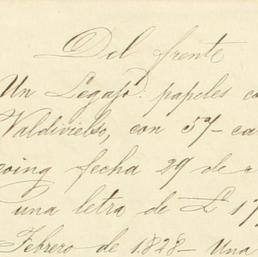 Del frente
Un Legajo papeles co
Valdivielso, con 57 ca
going fecha 29 de
una letra de £ 17
Febrero de 1828 - Una